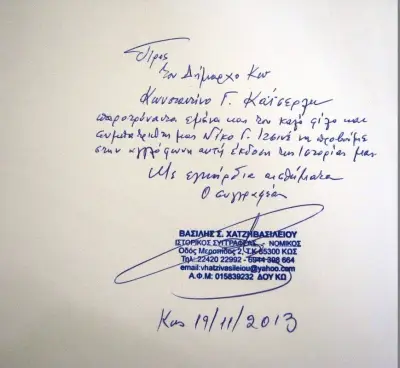 Προς
τον Δήμαρχο Κω
Κωνσταντίνο Γ. Καΐσερλη
παροτρύναντα εμένα και τον καλό φίλο και
συμπατριώτη μας Νίκο Γ. Ιτσινέ να προβούμε
στην αγγλόφωνη αυτή έκδοση της Ιστορίας μας
Με εγκάρδια αισθήματα
Ο συγγραφέας
ΒΑΣΙΛΗΣ Σ. ΧΑΤΖΗΒΑΣΙΛΕΙΟΥ
ΙΣΤΟΡΙΚΟΣ ΣΥΓΓΡΑΦΕΑΣ - ΝΟΜΙΚΟΣ
Οδός Μεροπίδος 2, Τ.Κ 85300 ΚΩΣ
Τηλ: 22420 22992 - 6944 398 664
email:vhatzivasileiou@yahoo.com
Α.Φ.Μ: 015839232 ΔΟΥ ΚΩ
Κως 19/11/2013